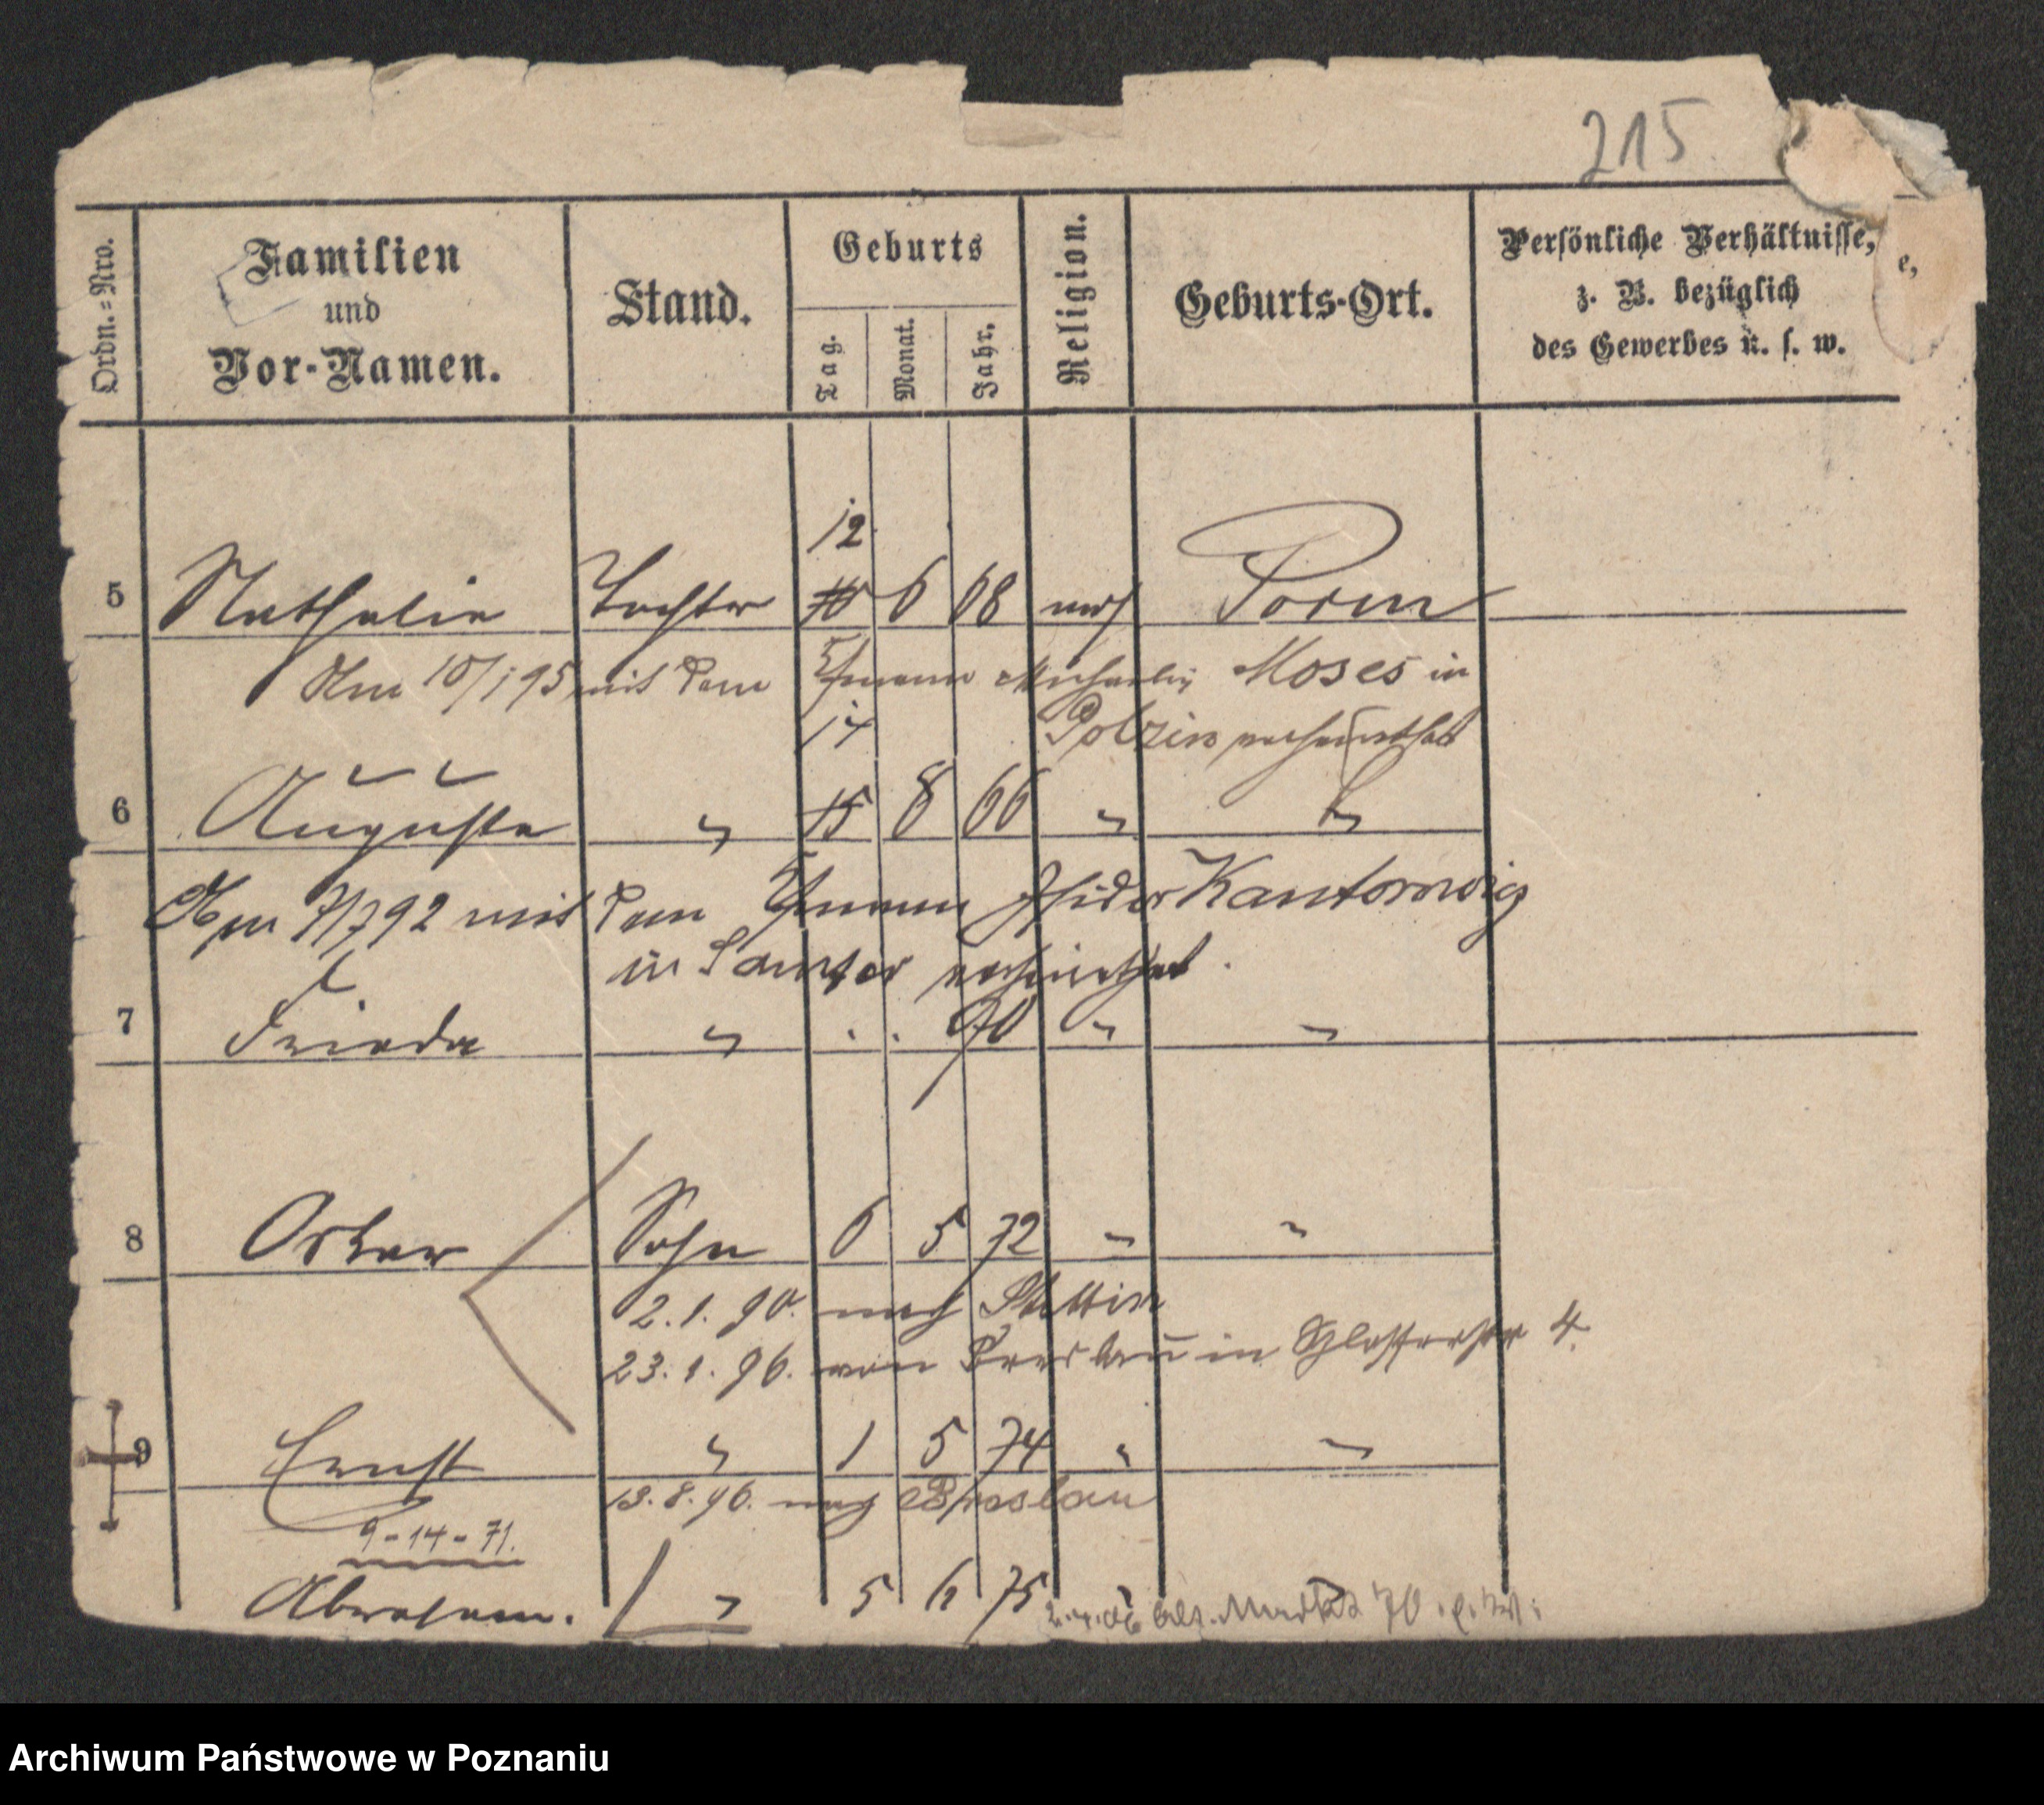 215
Ordn.=Nro.
Familien
und
Vor-Namen.
Stand.
Geburts
Tag.
Monat.
Jahr.
Religion.
Geburts-Ort.
Persönliche Verhältnisse,
z. B. bezüglich
des Gewerbes u. s. w.
e,
12
5 Nathalie Tochter 10 6 68 mos Posen
Am 10/1 95 mit dem Ehmann Michaelis Moses in
14 Polzin verheirathet
6 Auguste " 15 8 66 " "
Am 7/7 92 mit dem Ehmann Isidor Kantorowicz
in Samter verheirathet.
7 Frieda " . . 70 " "
8 Oskar Sohn 6 5 72 " "
2.1.90. nach Stettin
23.1.96. von Breslau in 4.
9 Ernst " 1 5 74 " "
13.8.96. nach Breslau
9-14-71.
Abraham. " 5 6 75 "